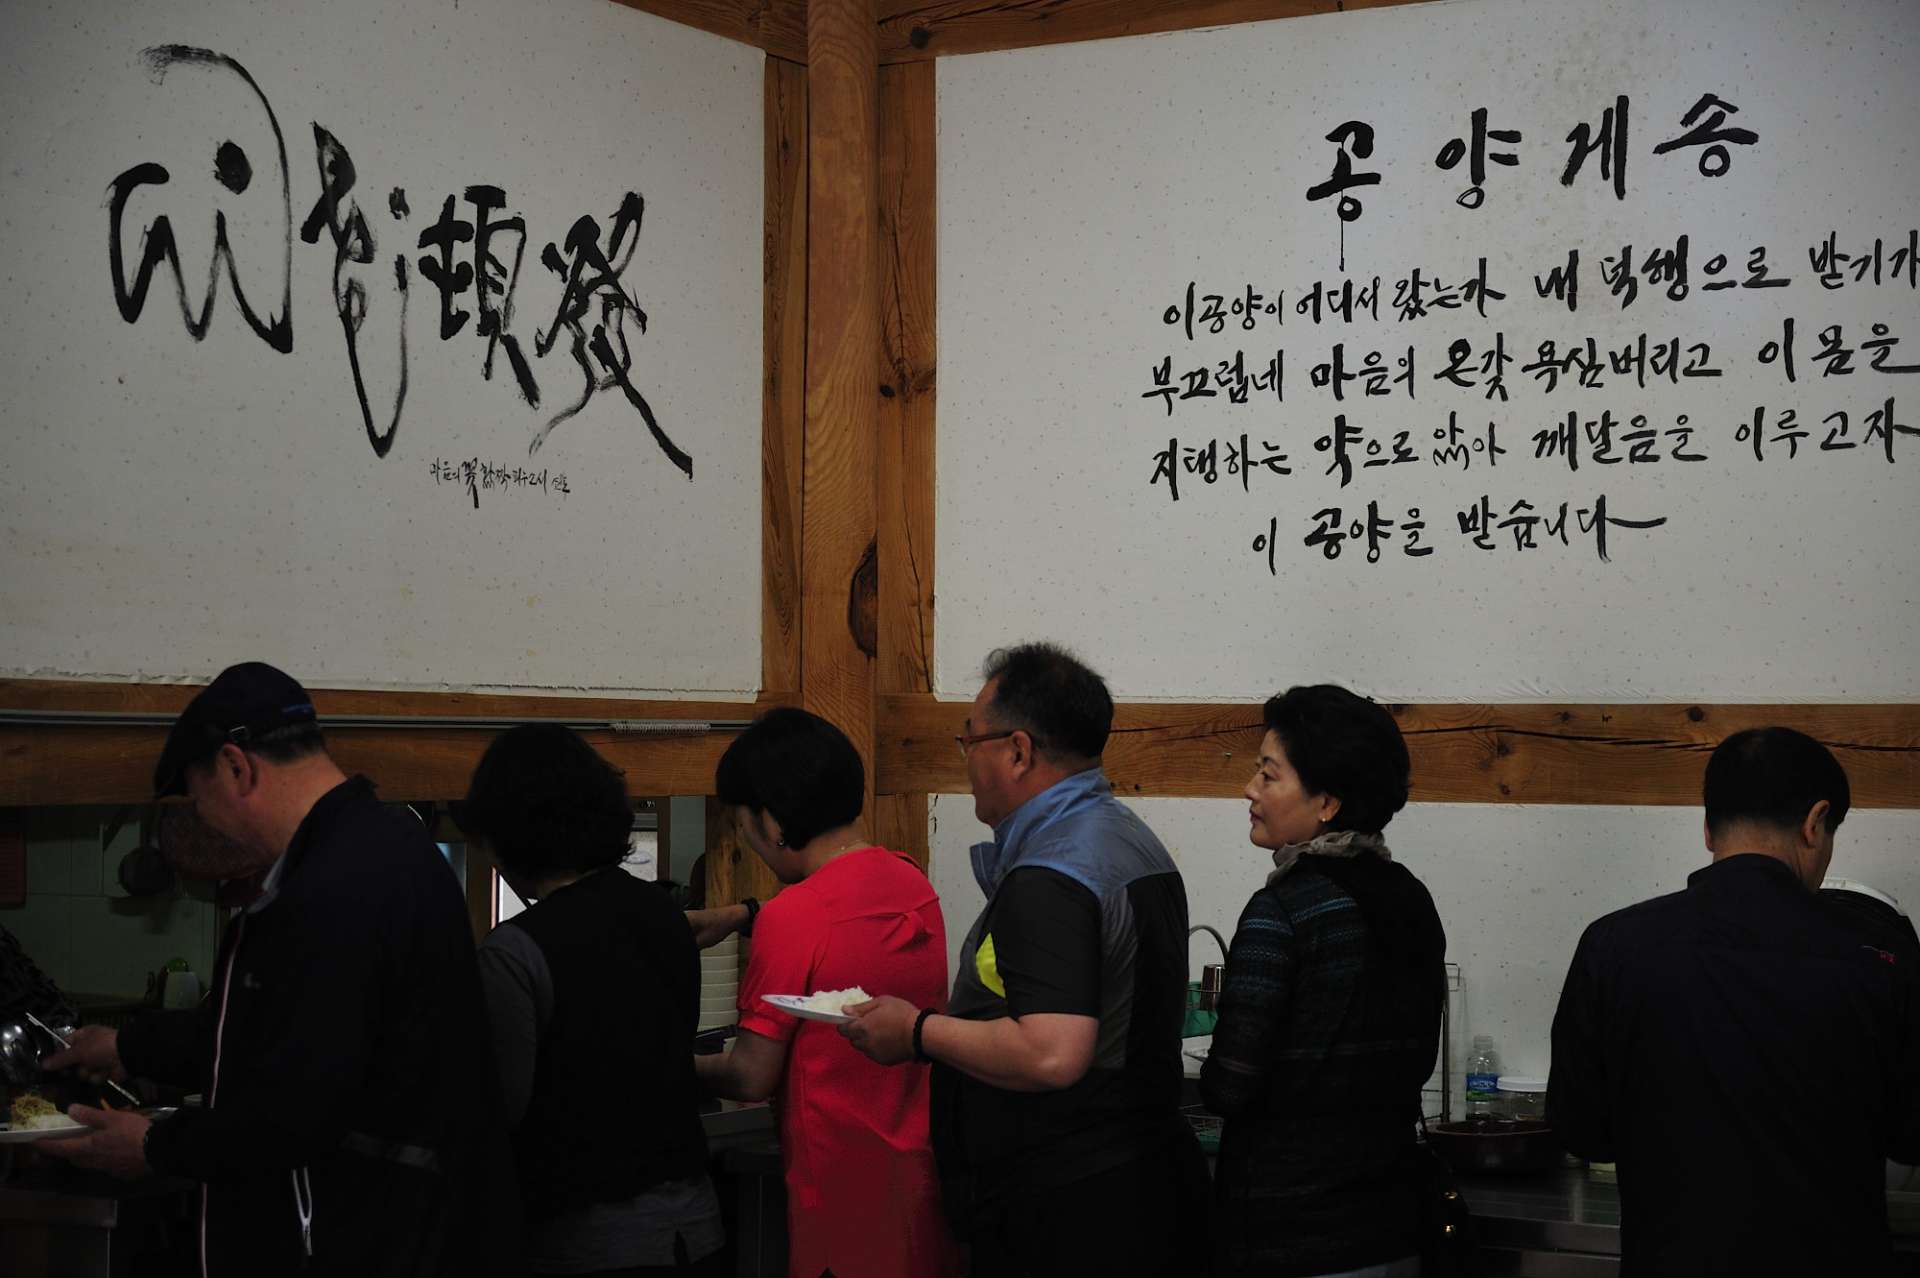 心花頓發
마음의 꽃 활짝 피우소서
공양게송
이 공양이 어디서 왔는가 내 덕행으로 받기가
부끄럽네 마음의 온갖 욕심버리고 이 몸을
지탱하는 약으로 삼아 깨달음을 이루고자
이 공양을 받습니다